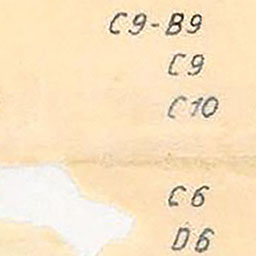 C9-B9
C9
C10
C6
D6